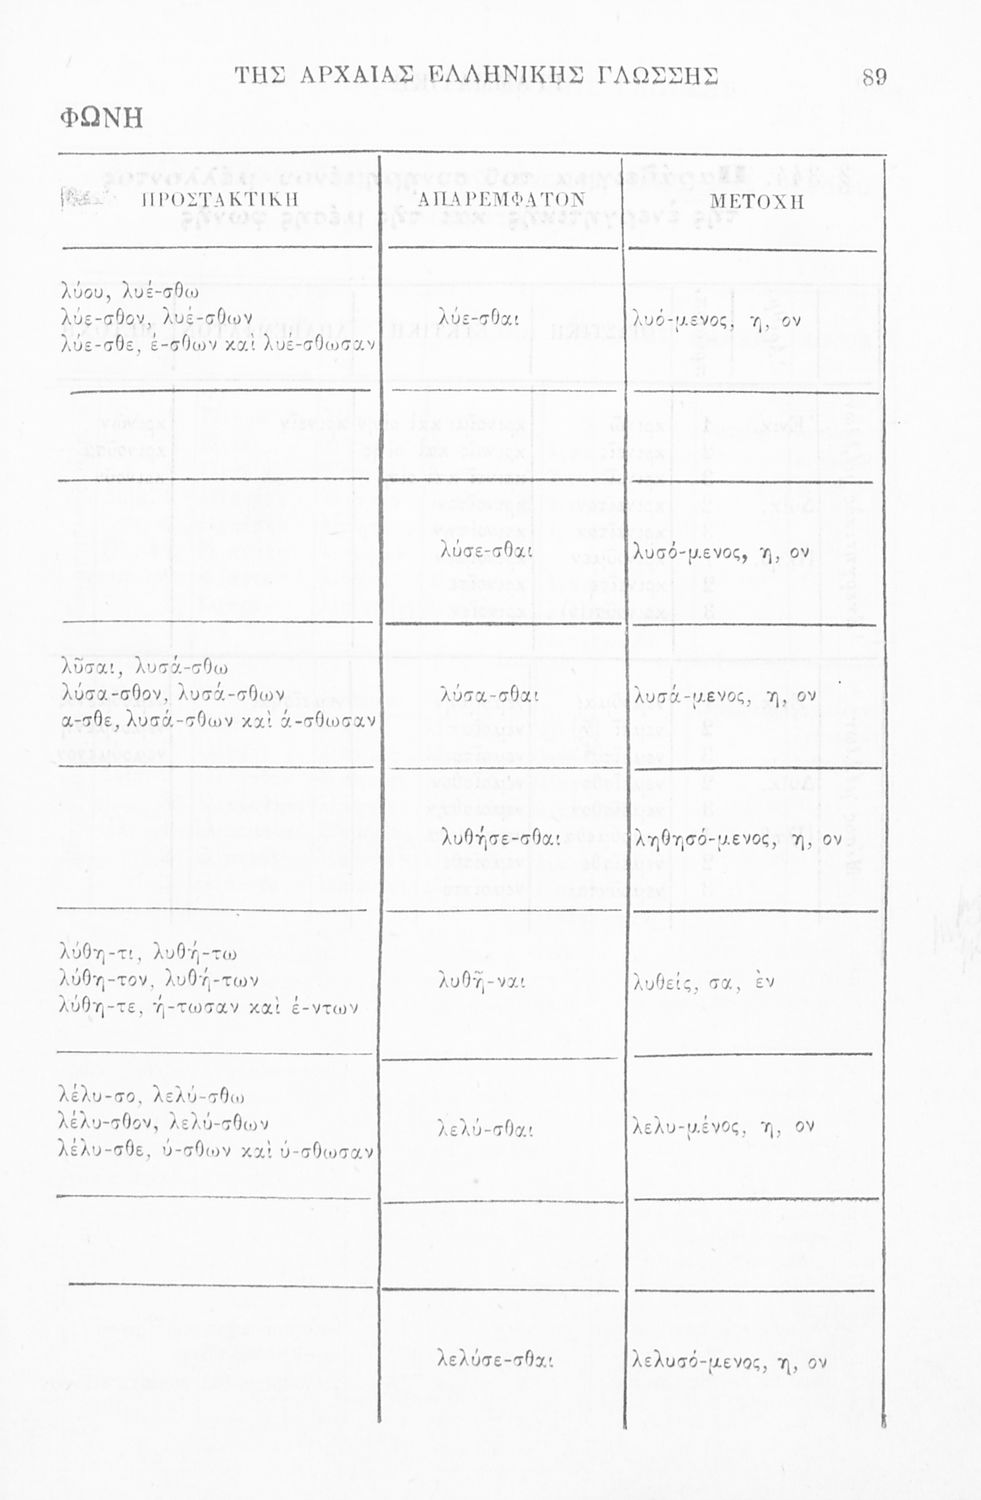 ΤΗΣ ΑΡΧΑΙΑΣ ΕΛΛΗΝΙΚΗΣ ΓΛΩΣΣΗΣ 89
ΦΩΝΗ
ΠΡΟΣΤΑΚΤΙΚΗ ἈΠΑΡΕΜΦΑΤΟΝ ΜΕΤΟΧΗ
λύου, λυέ-σθω
λύε-σθον, λυέ-σθων λύε-σθαι λυό-μενος, η, ον
λύε-σθε, έ-σθων καὶ λυέ-σθωσαν
λύσε-σθαι λυσό-μενος, η, ον
λῦσαι, λυσά-σθω
λύσα-σθον, λυσά-σθων λύσα-σθαι λυσά-μενος, η, ον
α-σθε, λυσά-σθων καὶ ά-σθωσαν
λυθήσε-σθαι ληθησό-μενος, η, ον
λύθη-τι, λυθή-τω
λύθη-τον, λυθή-των λυθῆ-ναι λυθείς, σα, ὲν
λύθη-τε, ή-τωσαν καὶ έ-ντων
λέλυ-σο, λελύ-σθω
λέλυ-σθον, λελύ-σθων λελύ-σθαι λελυ-μένος, η, ον
λέλυ-σθε, ύ-σθων καὶ ύ-σθωσαν
λελύσε-σθαι λελυσό-μενος, η, ον